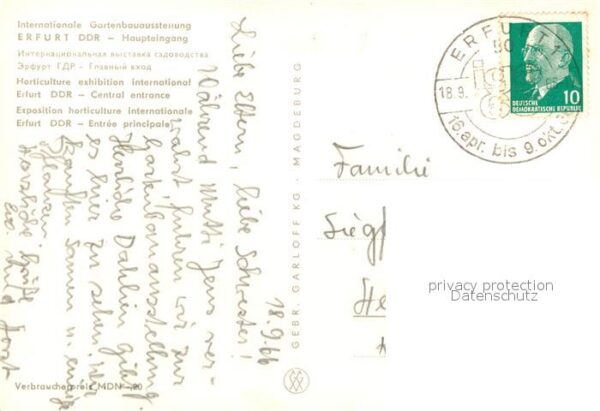 Internationale Gartenbauausstellung
ERFURT DDR – Haupteingang
Интернациональная выставка садоводства
Эрфурт ГДР – Главный вход
Horticulture exhibition international
Erfurt DDR – Central entrance
Exposition horticulture internationale
Erfurt DDR – Entrée principale
18.9.66
Liebe Eltern, liebe Schwester!
Während Mutti Jens ver-
wahrt fuhren wir zur
Gartenbauausstellung
Herrliche Dahlien gibt
es hier zu sehen. Wir
kauften Samen u. einige
Pflanzen.
Herzliche Grüße
Horst
Verbraucherpreis MDN -,20
GEBR. GARLOFF KG · MAGDEBURG
ERFURT
18.9.
16.apr. bis 9.okt.
DEUTSCHE
DEMOKRATISCHE REPUBLIK
10
Familie
Siegf
He
privacy protection
Datenschutz